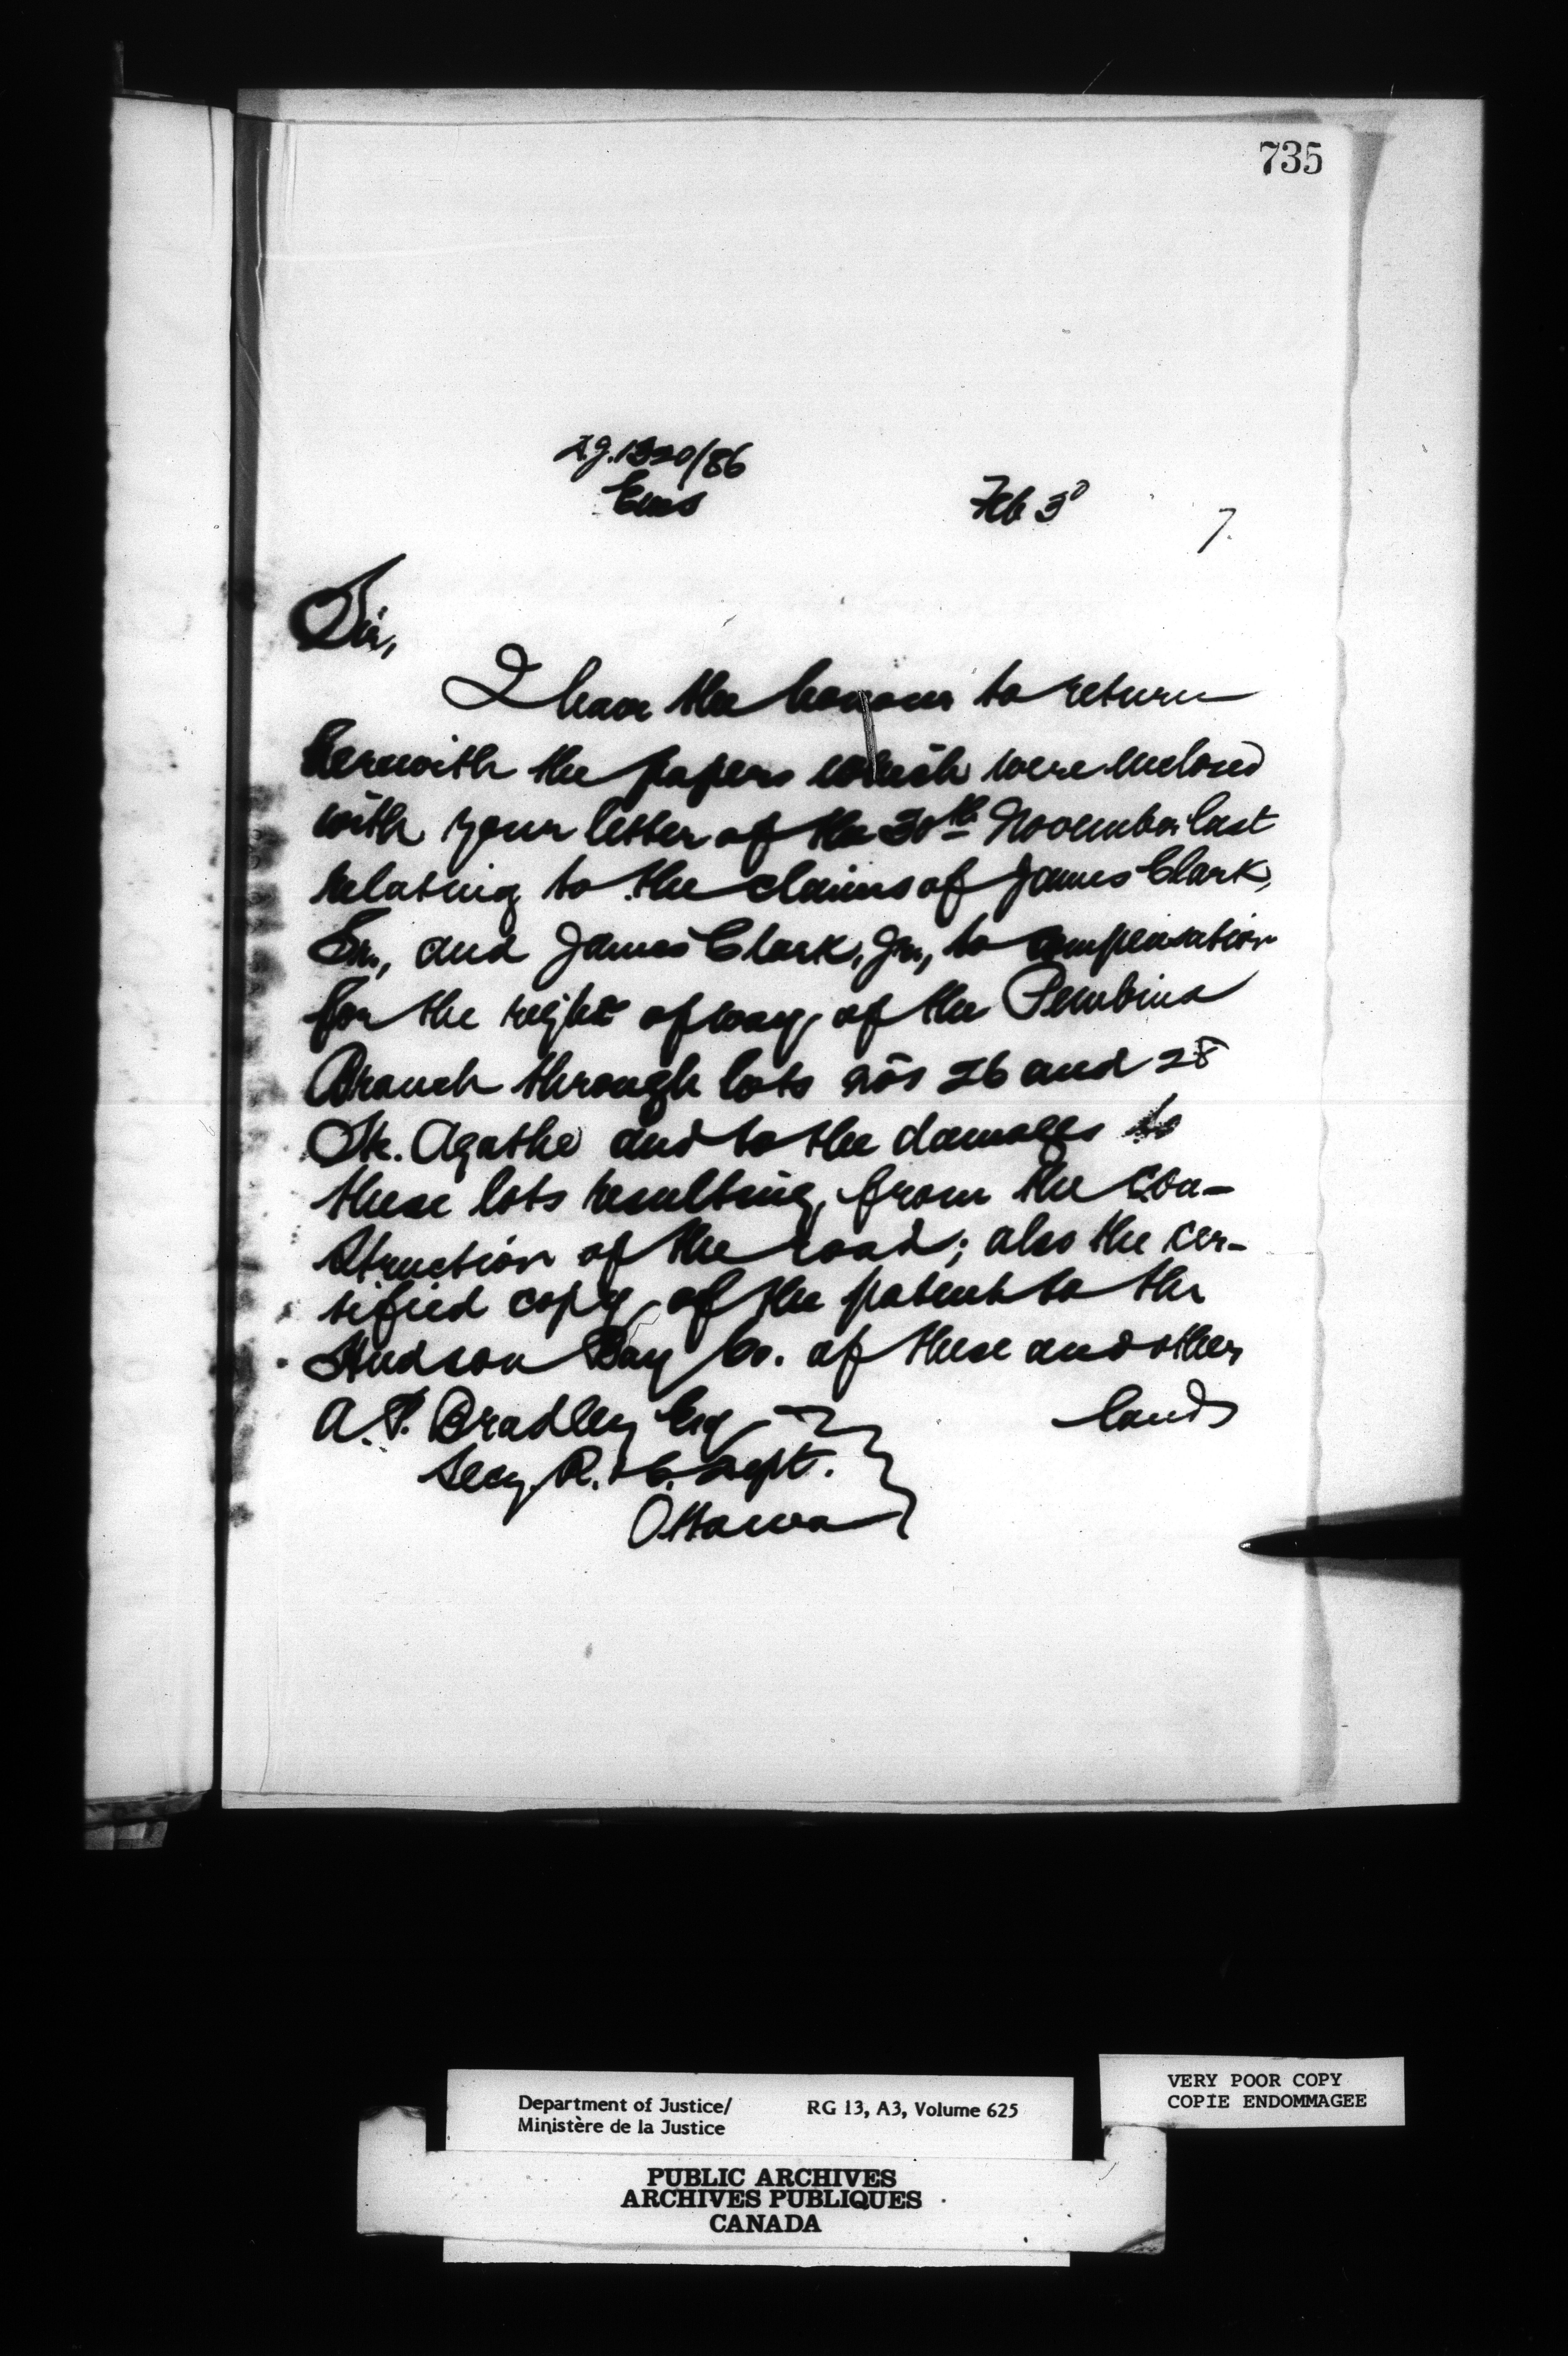 735
1320/86
Encs
Feb 3d
7.
Sir,
I have the honour to return
herewith the papers which were enclosed
with your letter of the 30th November last
relating to the claims of James Clark,
Sr., and James Clark, Jr., to compensation
for the right of way of the Pembina
Branch through lots nos 26 and 28
Ste. Agathe and to the damages to
these lots resulting from the con-
struction of the road; also the cer-
tified copy of the patent to the
Hudson Bay Co. of these and other
lands
A. P. Bradley Esq
Secy. R. & C. Dept.
Ottawa
VERY POOR COPY
COPIE ENDOMMAGEE
Department of Justice/ RG 13, A3, Volume 625
Ministère de la Justice
PUBLIC ARCHIVES
ARCHIVES PUBLIQUES
CANADA